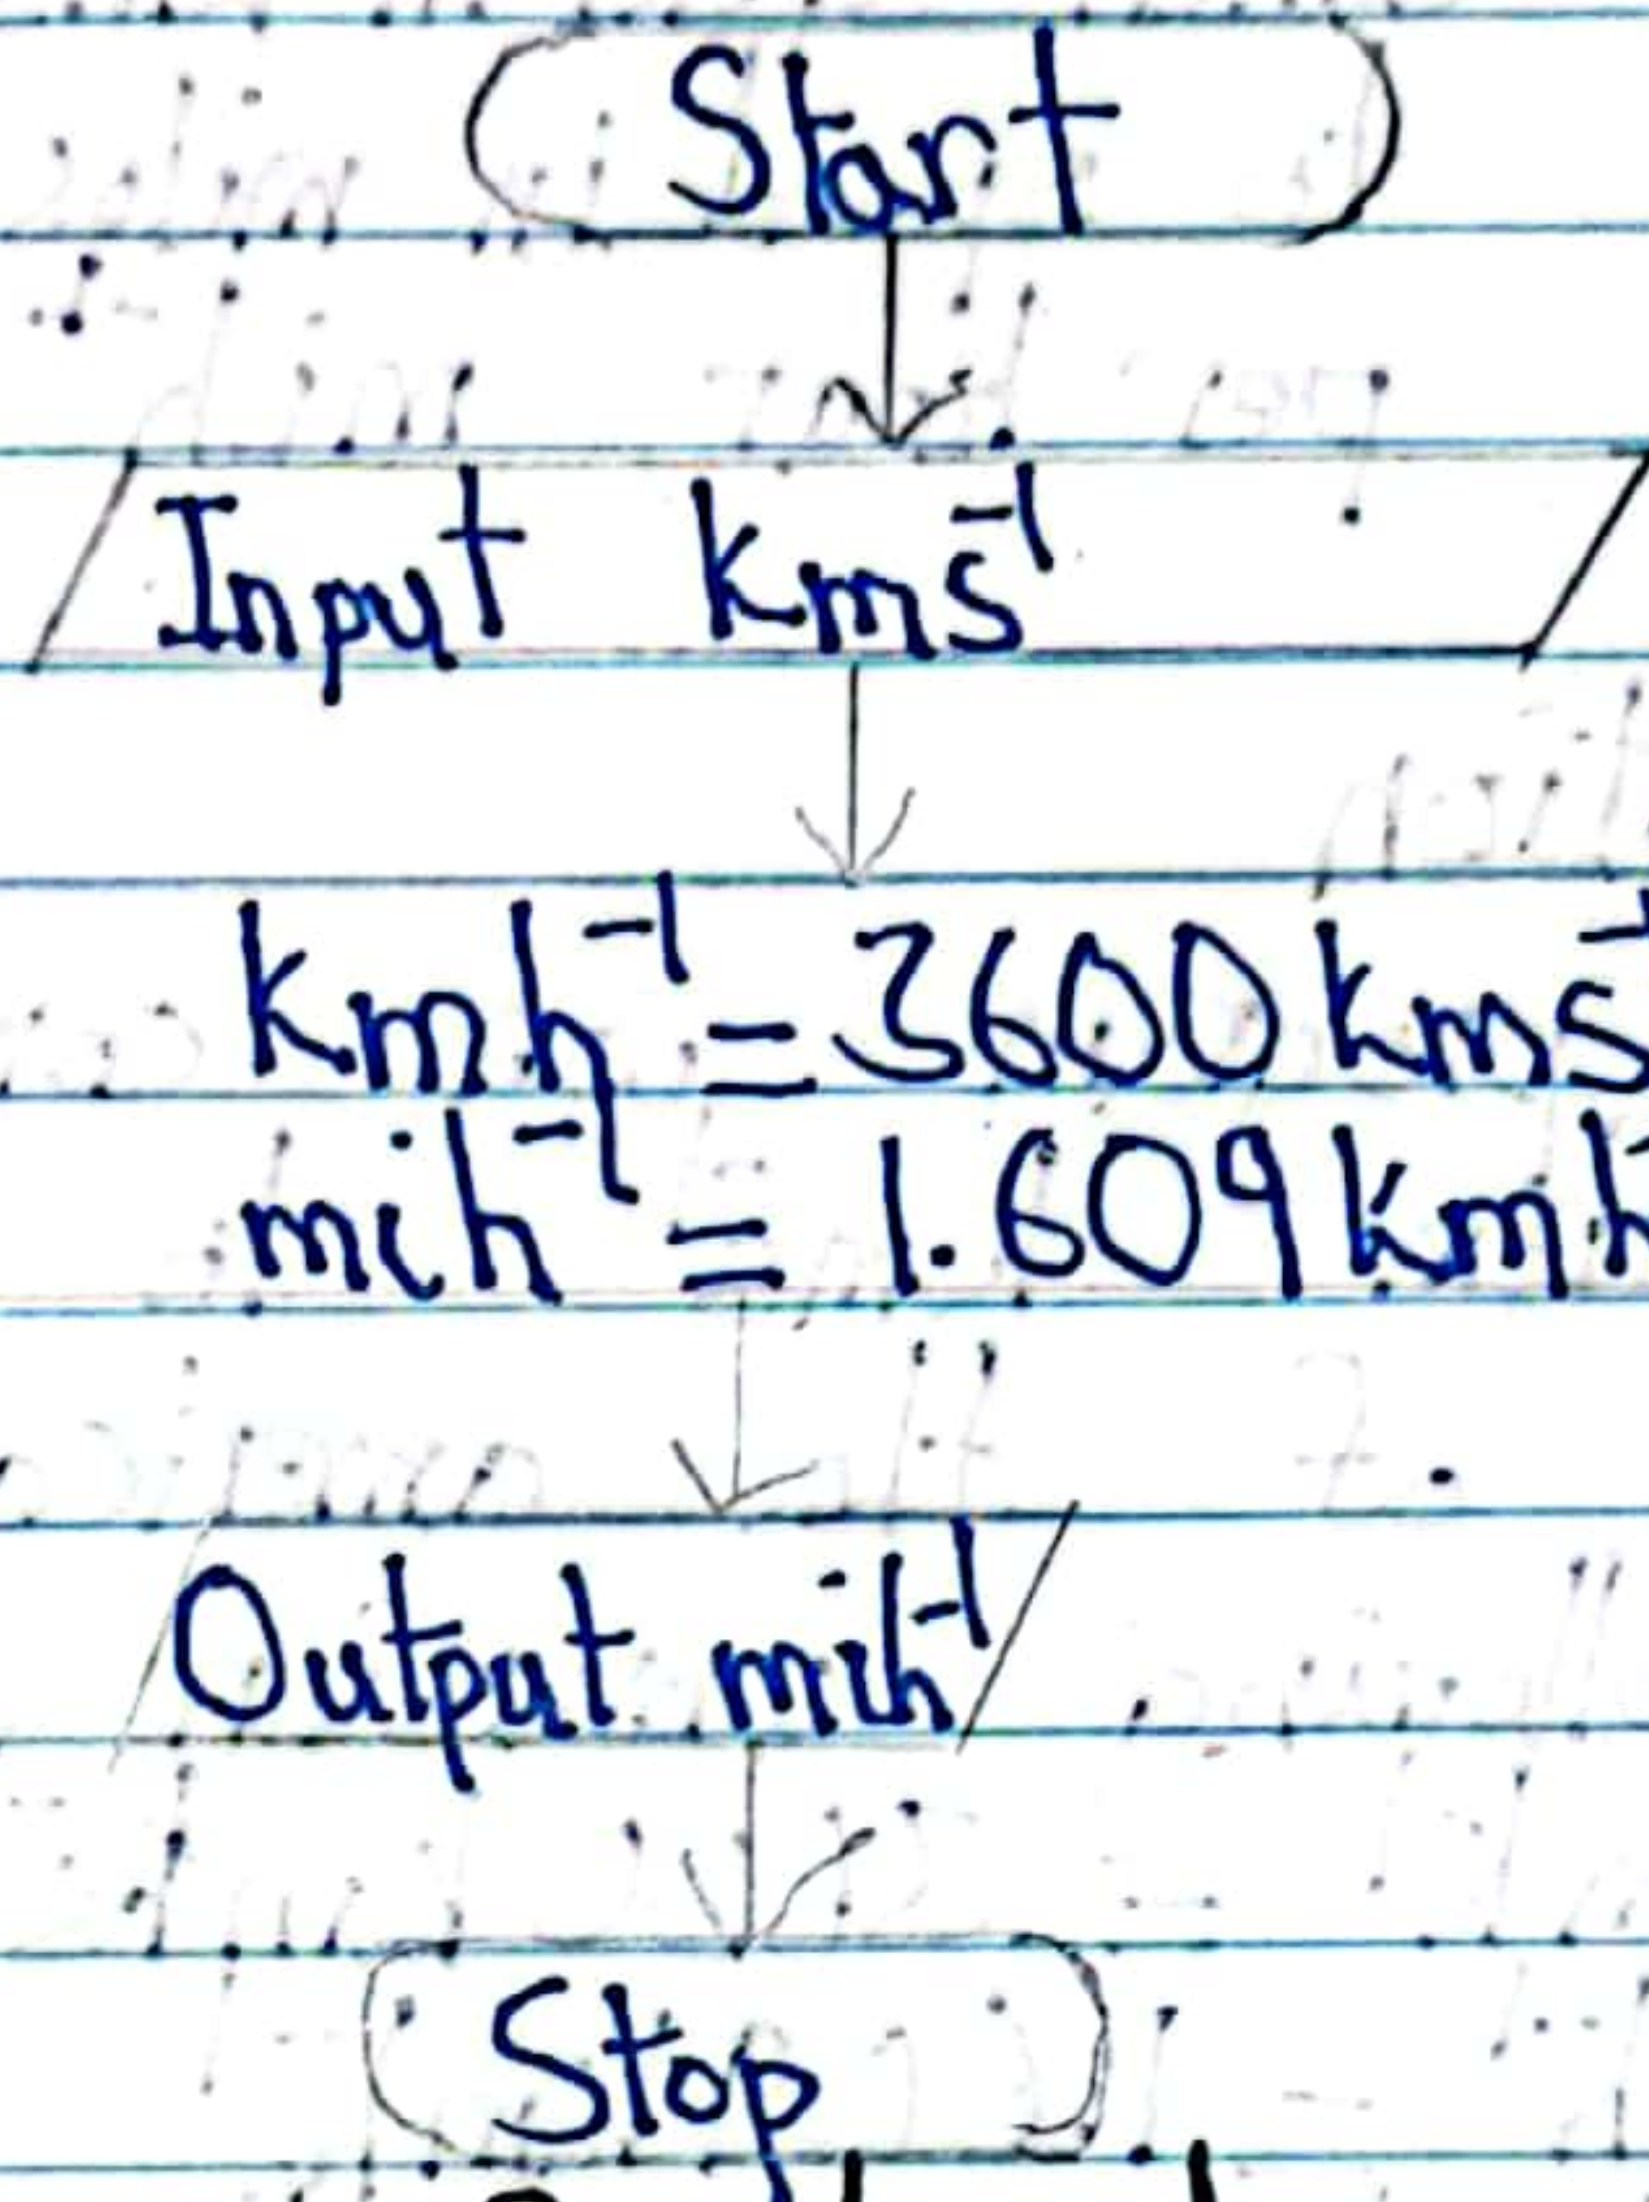 Start
Input kms⁻¹
kmh⁻¹ = 3600 kms⁻
mih⁻¹ = 1.609 kmh⁻
Output mih⁻¹
Stop